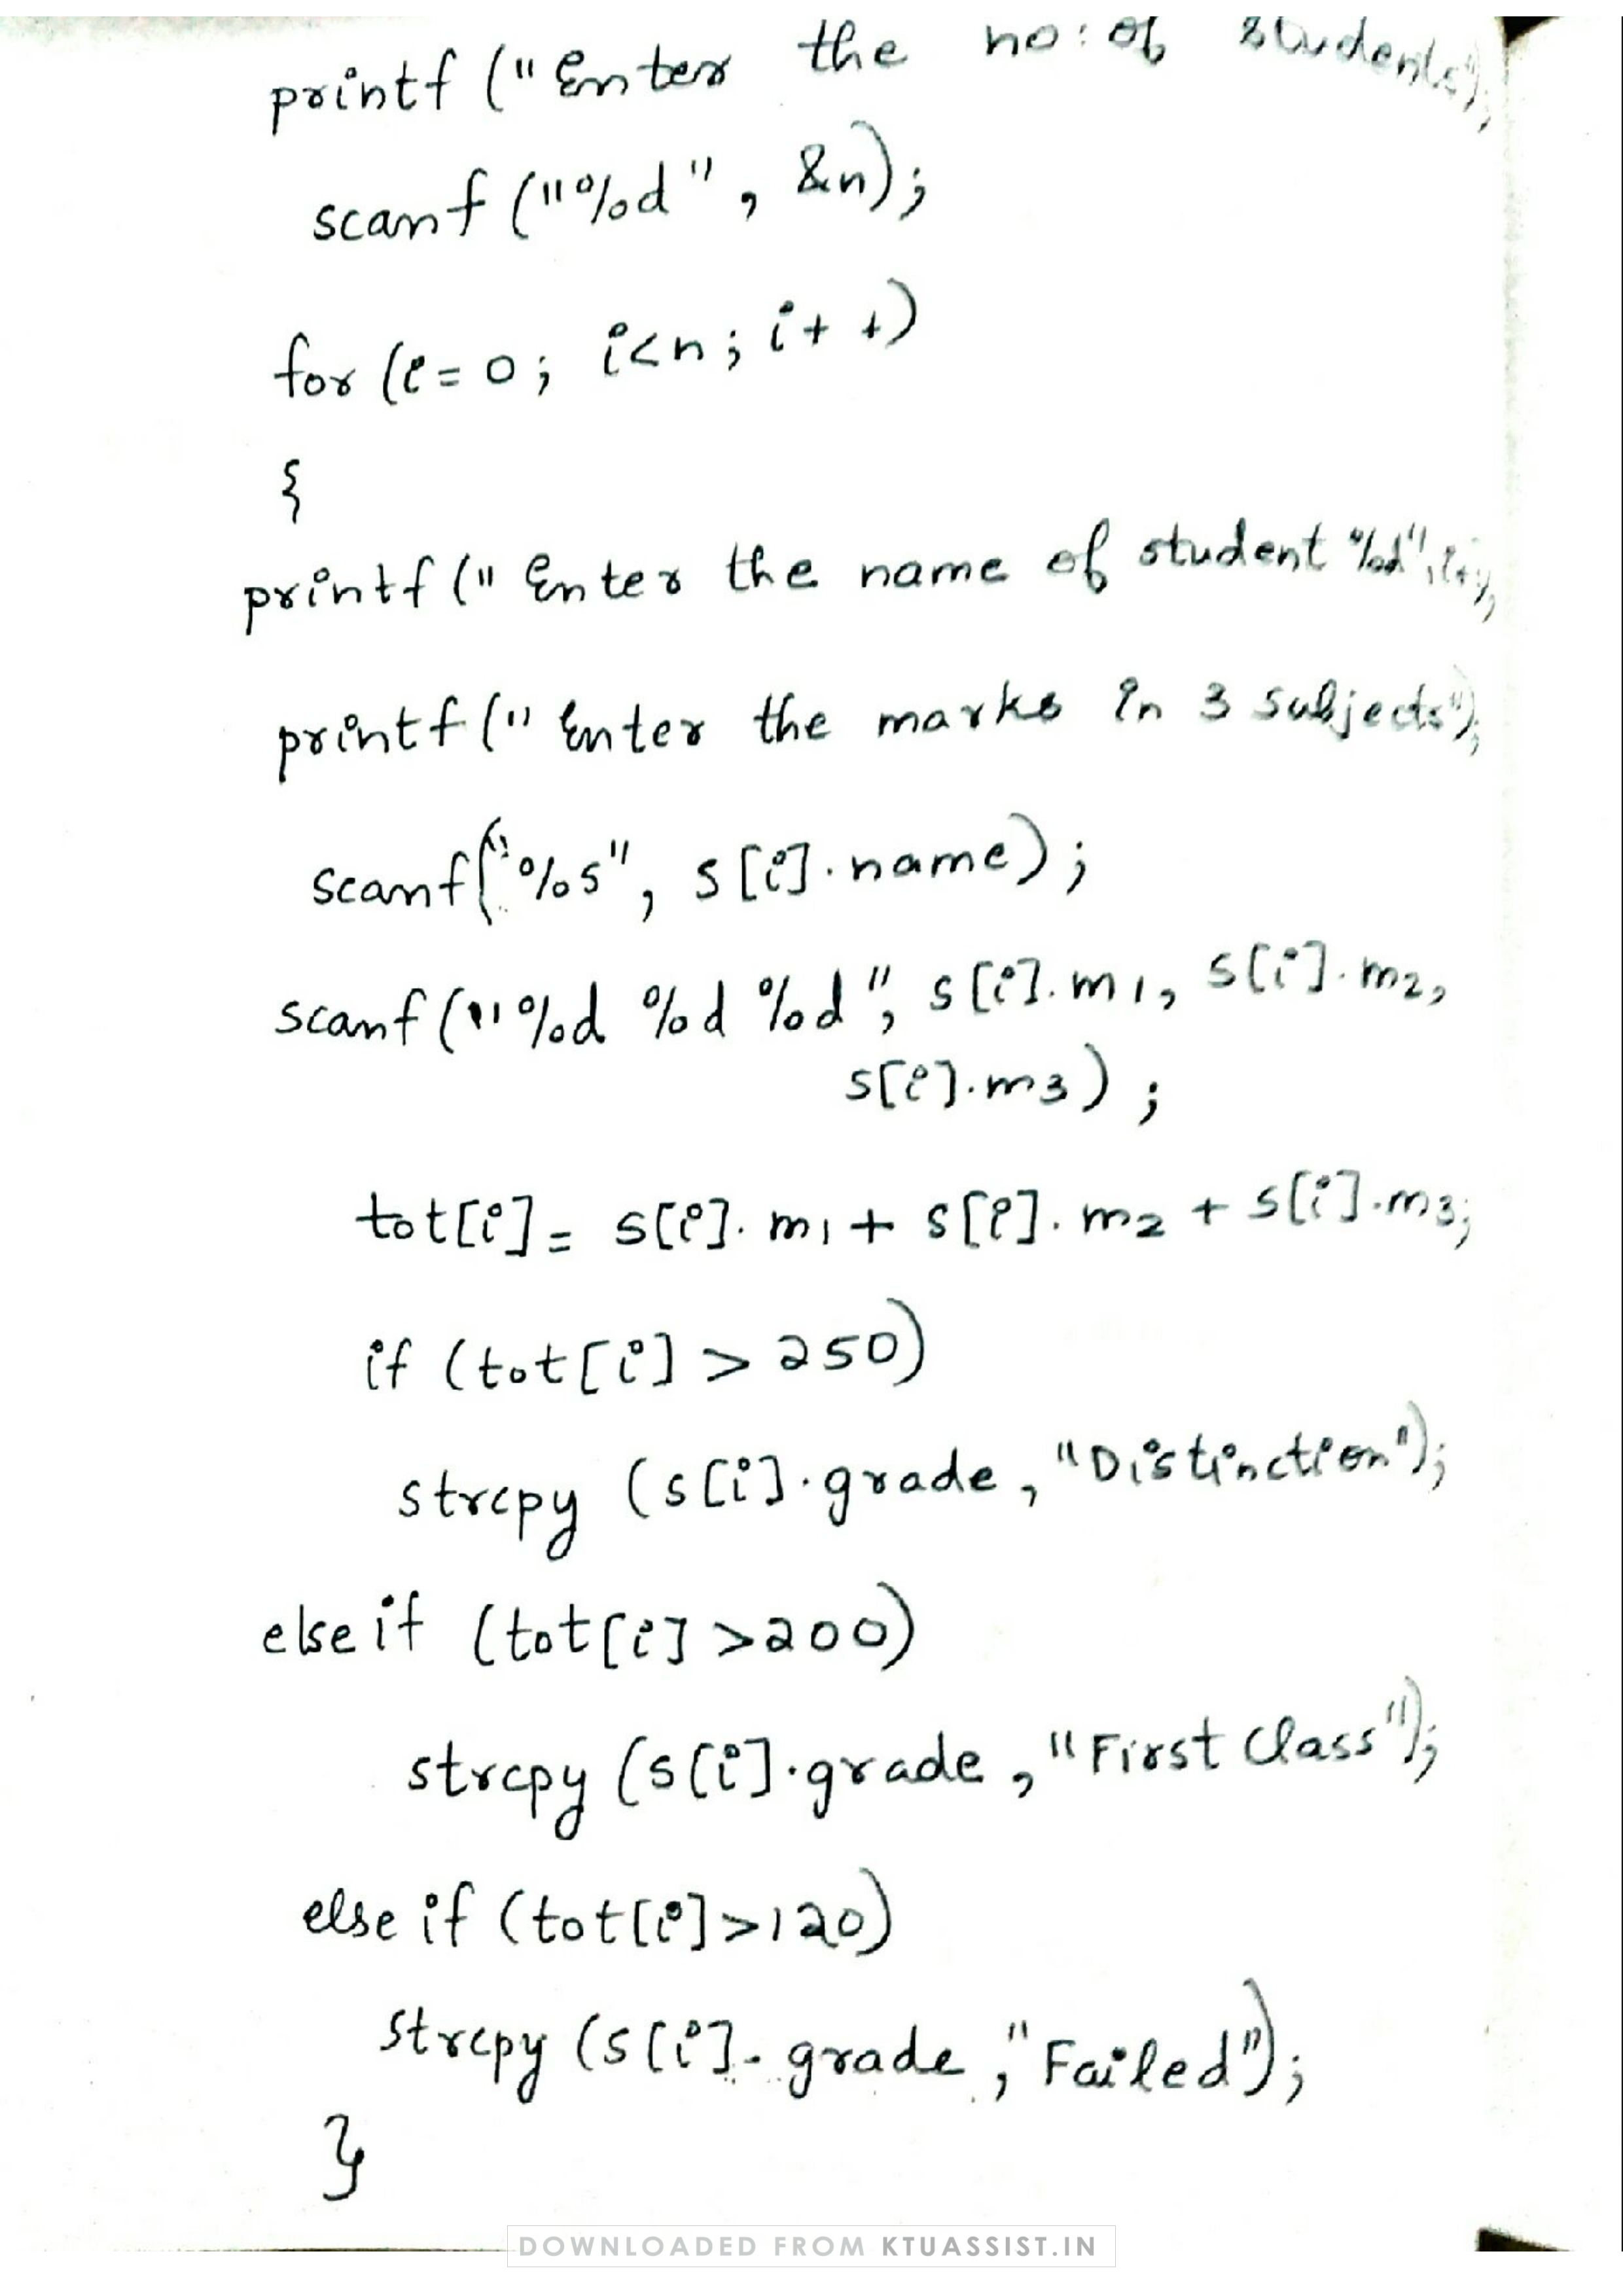 printf ("Enter the no: of students");
scanf ("%d", &n);
for (i=0; i<n; i++)
{
printf (" Enter the name of student %d",
printf (" Enter the marks in 3 subjects");
scanf("%s", s[i].name);
scanf ("%d %d %d", s[i].m1, s[i].m2,
s[i].m3);
tot[i]= s[i].m1 + s[i].m2 + s[i].m3;
if (tot[i] > 250)
strcpy (s[i].grade, "Distinction");
else if (tot[i] >200)
strcpy (s[i].grade, "First Class");
else if (tot[i]>120)
strcpy (s[i].grade, "Failed");
}
DOWNLOADED FROM KTUASSIST.IN